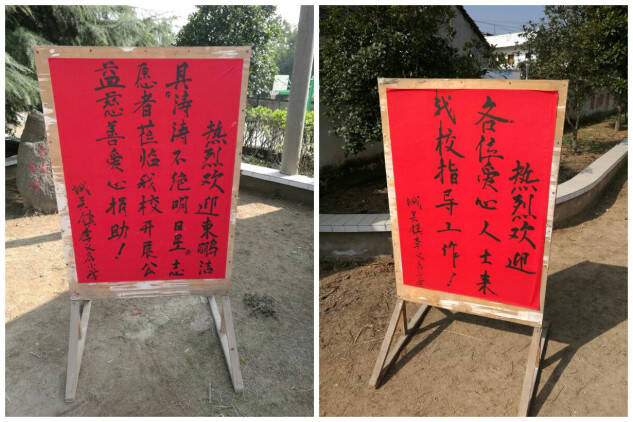 热烈欢迎東鹏洁
具。涛涛不绝明日星。志
愿者莅临我校开展公
益慈善爱心捐助！
城关镇
热烈欢迎
各位爱心人士来
我校指导工作！
城关镇